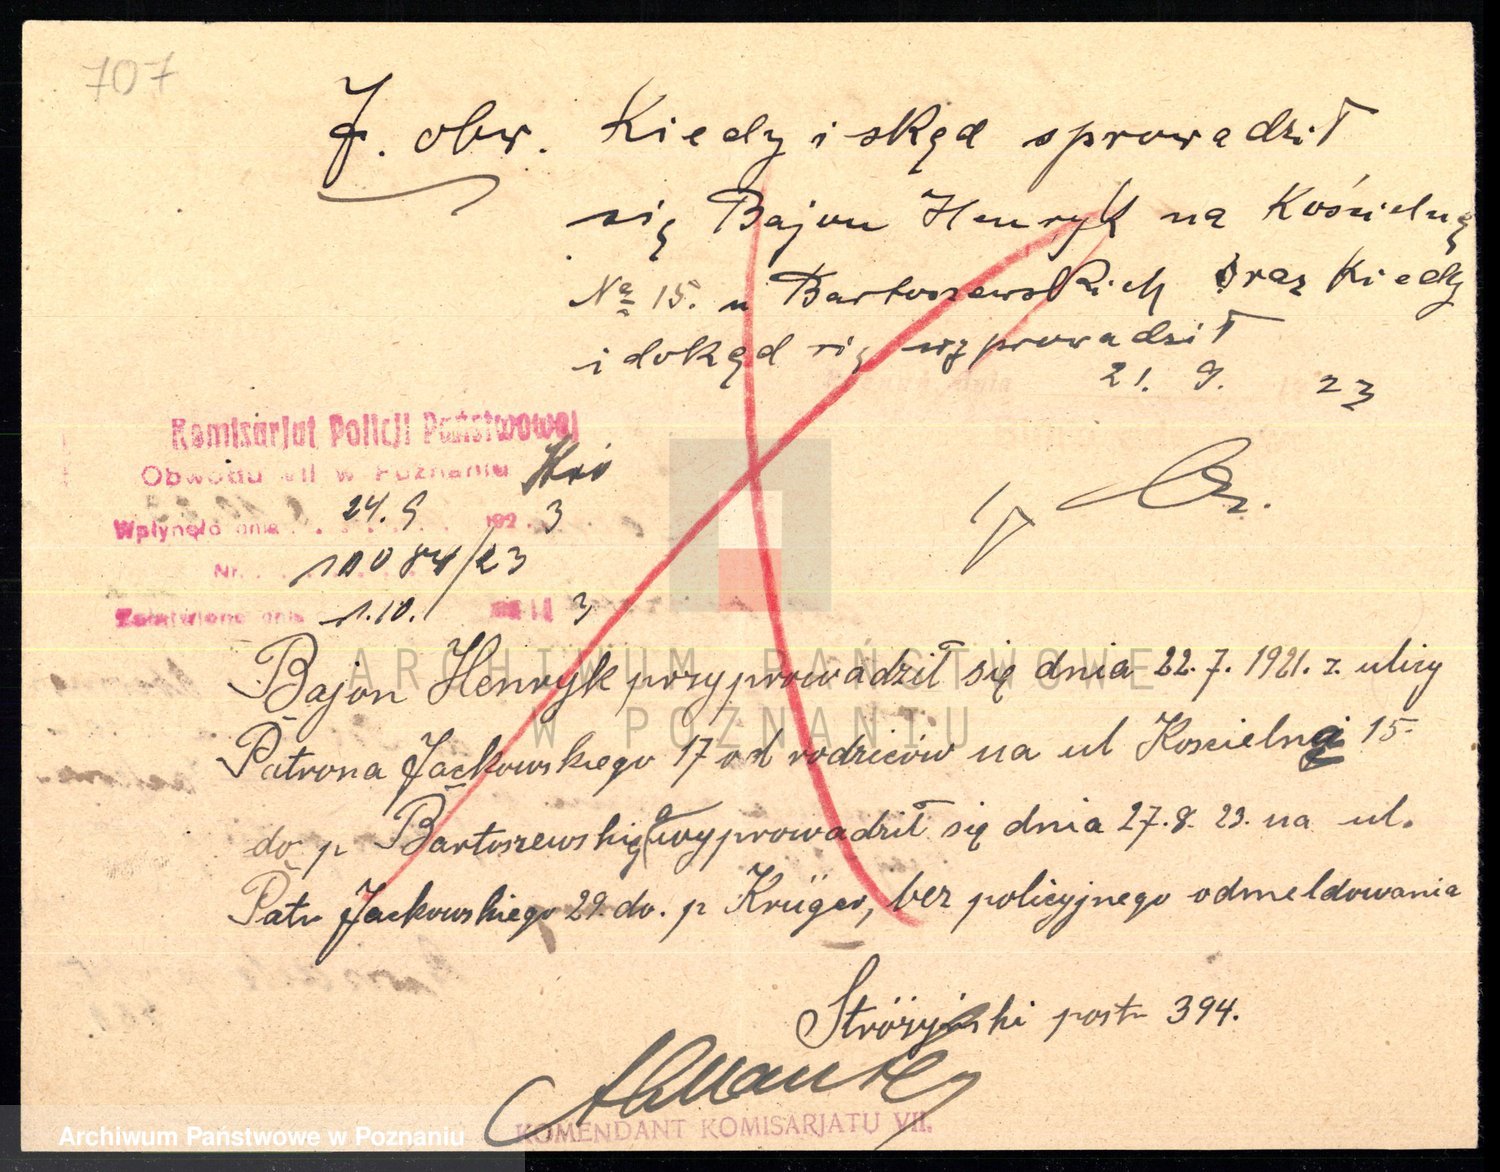 707
J. obw. Kiedy i skąd sprowadził
się Bajon Henryk na Kościelną
No 15. u Bartoszewskich oraz Kiedy
i dokąd się wyprowadził
21. 9. 23
Komisarjat Policji Państwowej
Obwodu VII w Poznaniu
Wpłynęło dnia 24.9 192 3
Nr. 10084/23
Załatwiono dnia 1.10. 192 3
Bajon Henryk przyprowadził się dnia 22.7. 1921. z. ulicy
Patrona Jackowskiego 17 od rodziców na ul Koscielną 15
do p Bartoszewskię a wyprowadził się dnia 27.8. 23. na ul.
Patr Jackowskiego 29. do. p Krüger, bez policyjnego odmeldowania
Stróżyński post 394.
KOMENDANT KOMISARJATU VII.
ARCHIWUM PAŃSTWOWE
W POZNANIU
Archiwum Państwowe w Poznaniu